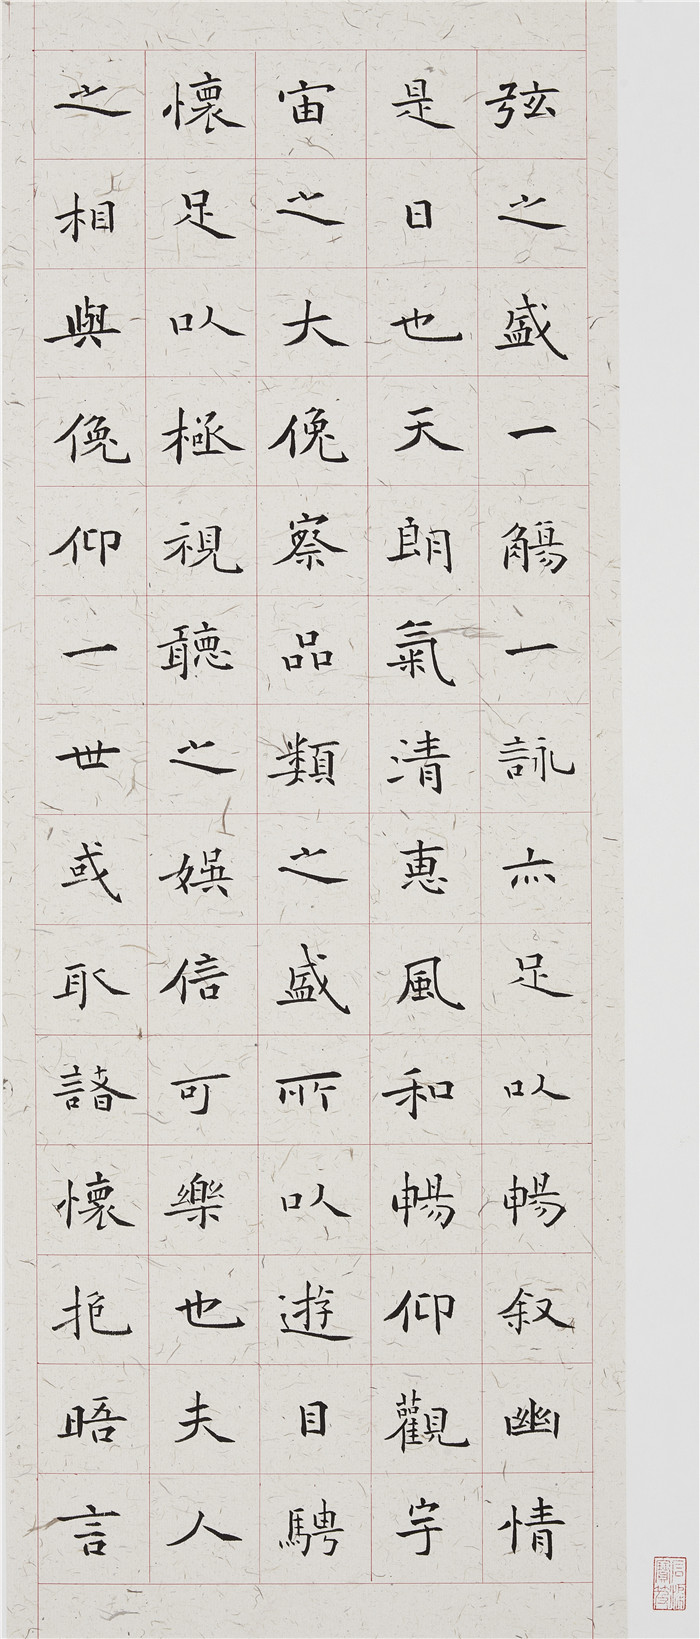 弦之盛一觴一詠亦足以暢叙幽情
是日也天朗氣清惠風和暢仰觀宇
宙之大俛察品類之盛所以遊目騁
懷足以極視聽之娛信可樂也夫人
之相與俛仰一世或取諸懷抱晤言